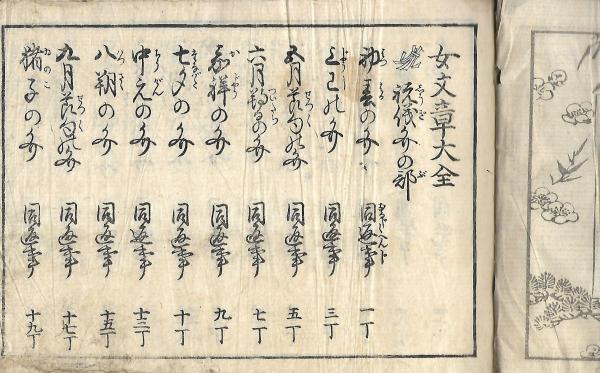 女文章大全
祝儀文の部
初春の文 同返事 一丁
上巳の文 同返事 三丁
五月節句の文 同返事 五丁
六月朔日の文 同返事 七丁
嘉祥の文 同返事 九丁
七夕の文 同返事 十丁
中元の文 同返事 十三丁
八朔の文 同返事 十五丁
九月節句の文 同返事 十七丁
猪子の文 同返事 十九丁